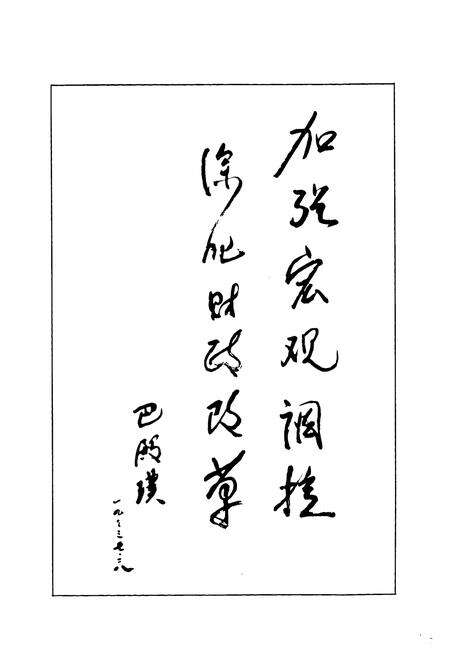 加强宏观调控
深化财政改革
巴殿璞
一九九三、七、二八